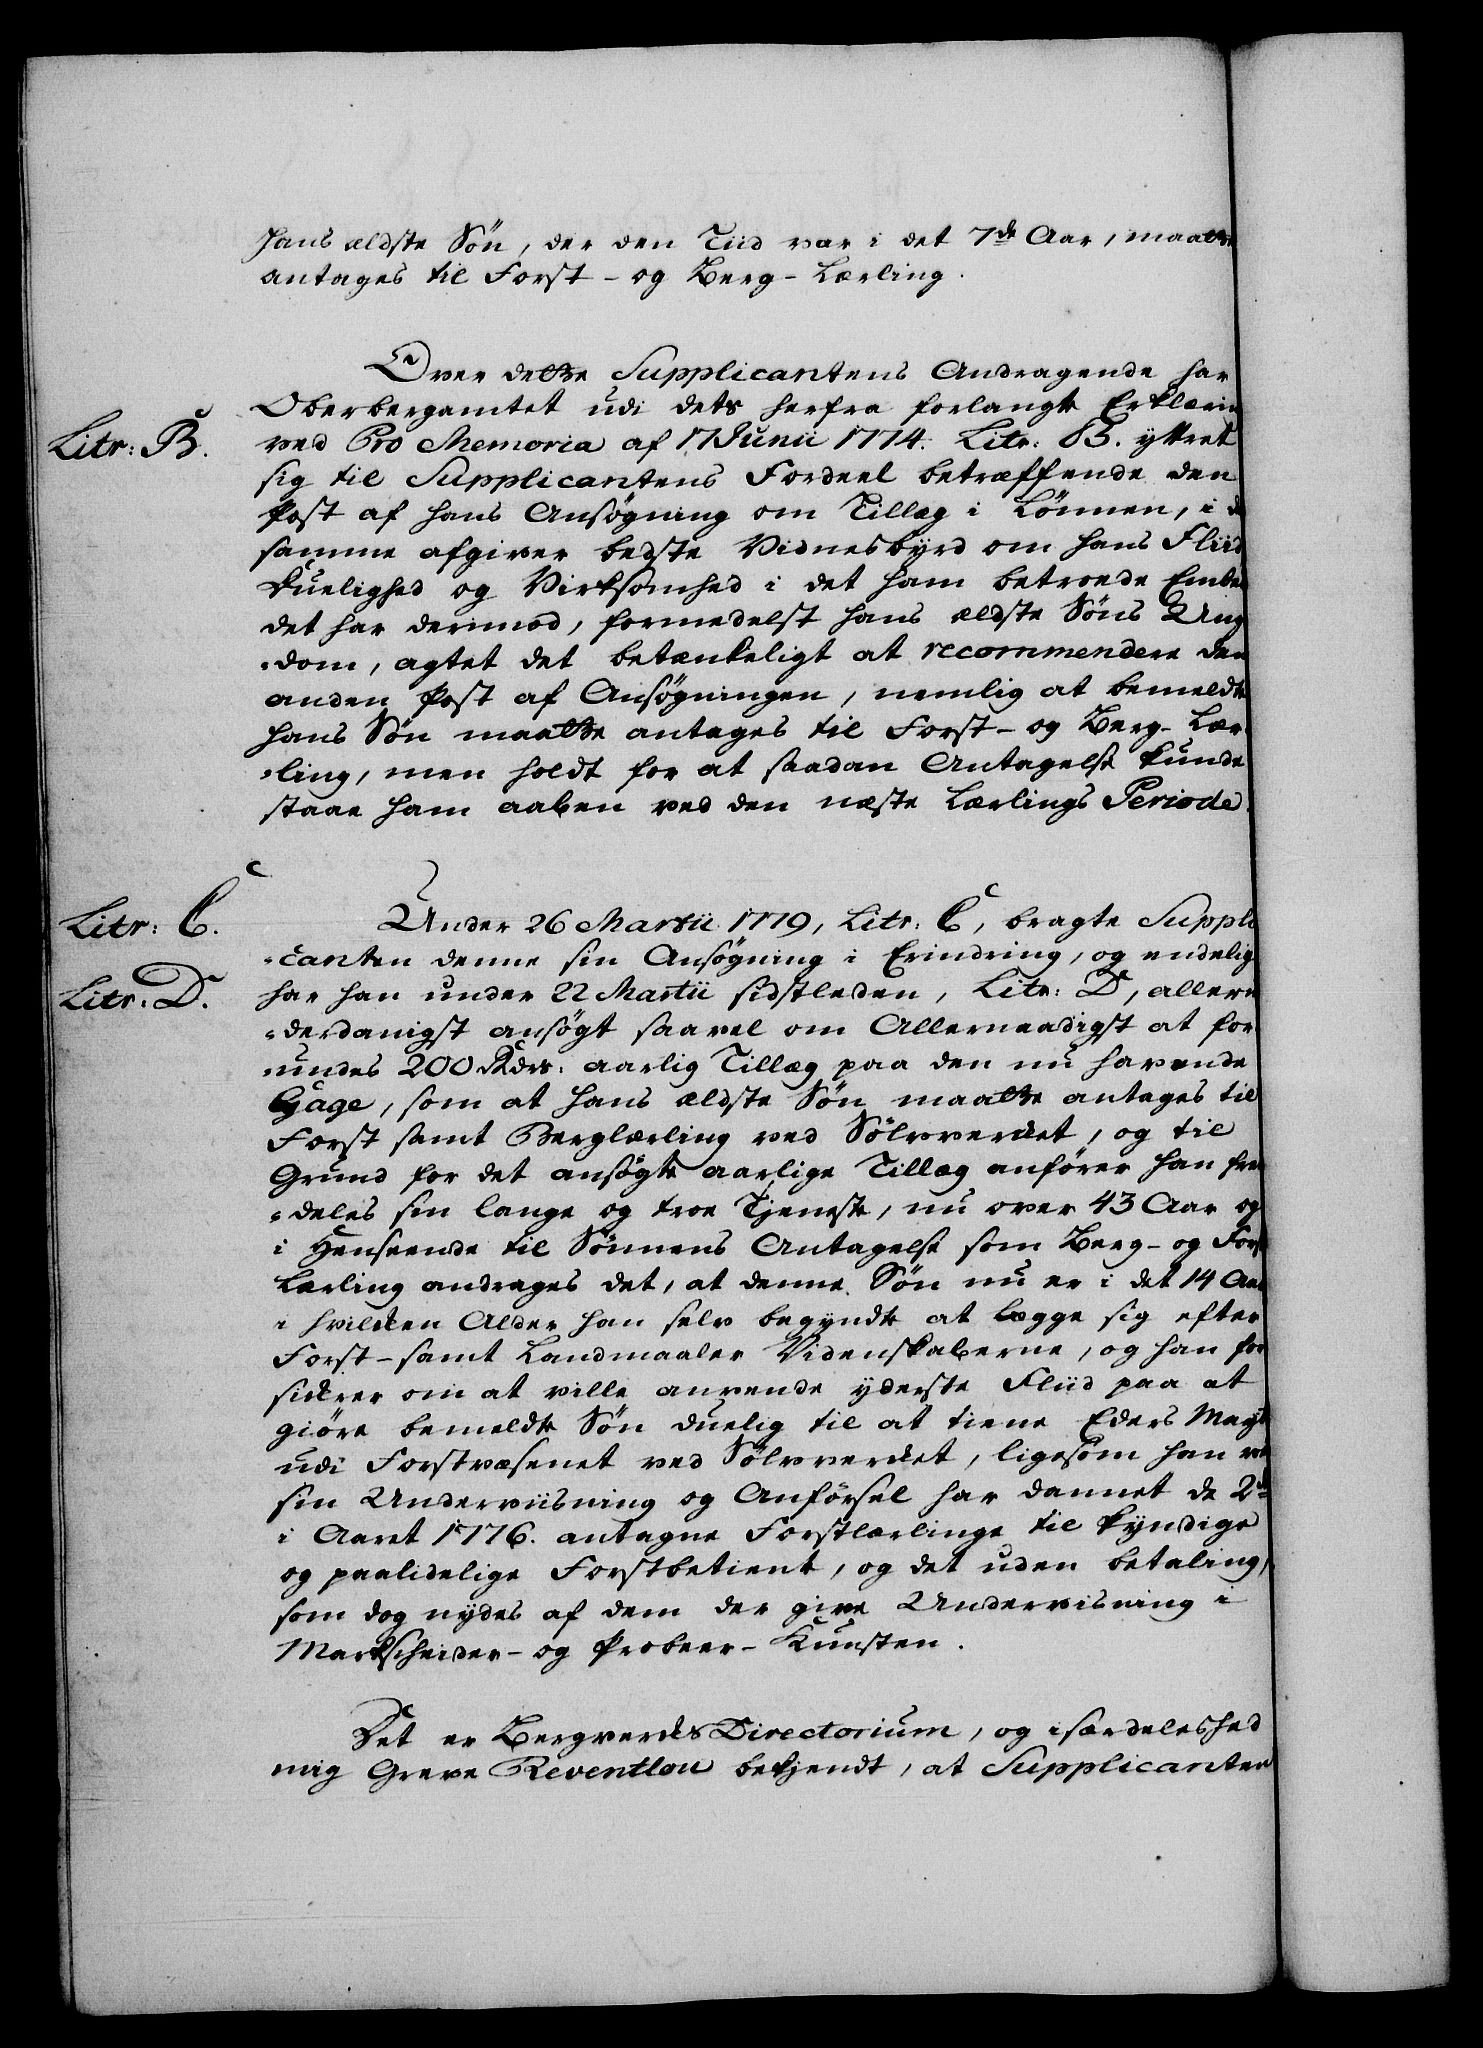 hans ældste Søn, der den Tiid var i det 7de Aar, maatte
antages til Forst- og Berg-Lærling.
Over dette Supplicantens Andragende har
Oberbergamtet udi dets herfra forlangte Erklærin
Litr: B.
ved Pro Memoria af 17 Junii 1774. Litr: B. yttret
sig til Supplicantens Fordeel betræffende den
Post af hans Ansøgning om Tillæg i Lønnen, i d
samme afgiver bedste Vidnesbyrd om hans Fliid
Duelighed og Virksomhed i det ham betroede Embe
det har derimod, formedelst hans ældste Søns Ung
-dom, agtet det betænkeligt at recommendere den
anden Post af Ansøgningen, nemlig at bemeldte
hans Søn maatte antages til Forst- og Berg-Lær
-ling, men holdt for at saadan Antagelse kunde
staae ham aaben ved den næste Lærlings Periode.
Litr: C.
Under 26 Martii 1779, Litr: C, bragte Suppli
-canten denne sin Ansøgning i Erindring, og endelig
Litr: D.
har han under 22 Martii sidstleden, Litr: D, allerun
-derdanigst ansøgt saavel om Allernaadigst at for
-undes 200 Rdr: aarlig Tillæg paa den nu havende
Gage, som at hans ældste Søn maatte antages til
Forst samt Berglærling ved Sølvverket, og til
Grund for det ansøgte aarlige Tillæg anfører han frem
-deles sin lange og troe Tjeneste, nu over 43 Aar og
i Henseende til Sønnens Antagelse som Berg- og Forst
Lærling andrages det, at denne Søn nu er i det 14 Aar
i hvilken Alder han selv begyndte at lægge sig efter
Forst- samt Landmaaler Videnskaberne, og han for
sikrer om at ville anvende yderste Fliid paa at
giøre bemeldte Søn duelig til at tiene Eders Mayt
udi Forstvæsenet ved Sølvverket, ligesom han ved
sin Underviisning og Anførsel har dannet de 2de
i Aaret 1776. antagne Forstlærlinge til kyndige
og paalidelige Forstbetient, og det uden betaling,
som dog nydes af dem der give Undervisning i
Markscheider- og Probeer-Kunsten.
Det er Bergverks Directorium, og isærdeleshed
mig Greve Reventlou bekjendt, at Supplicanten